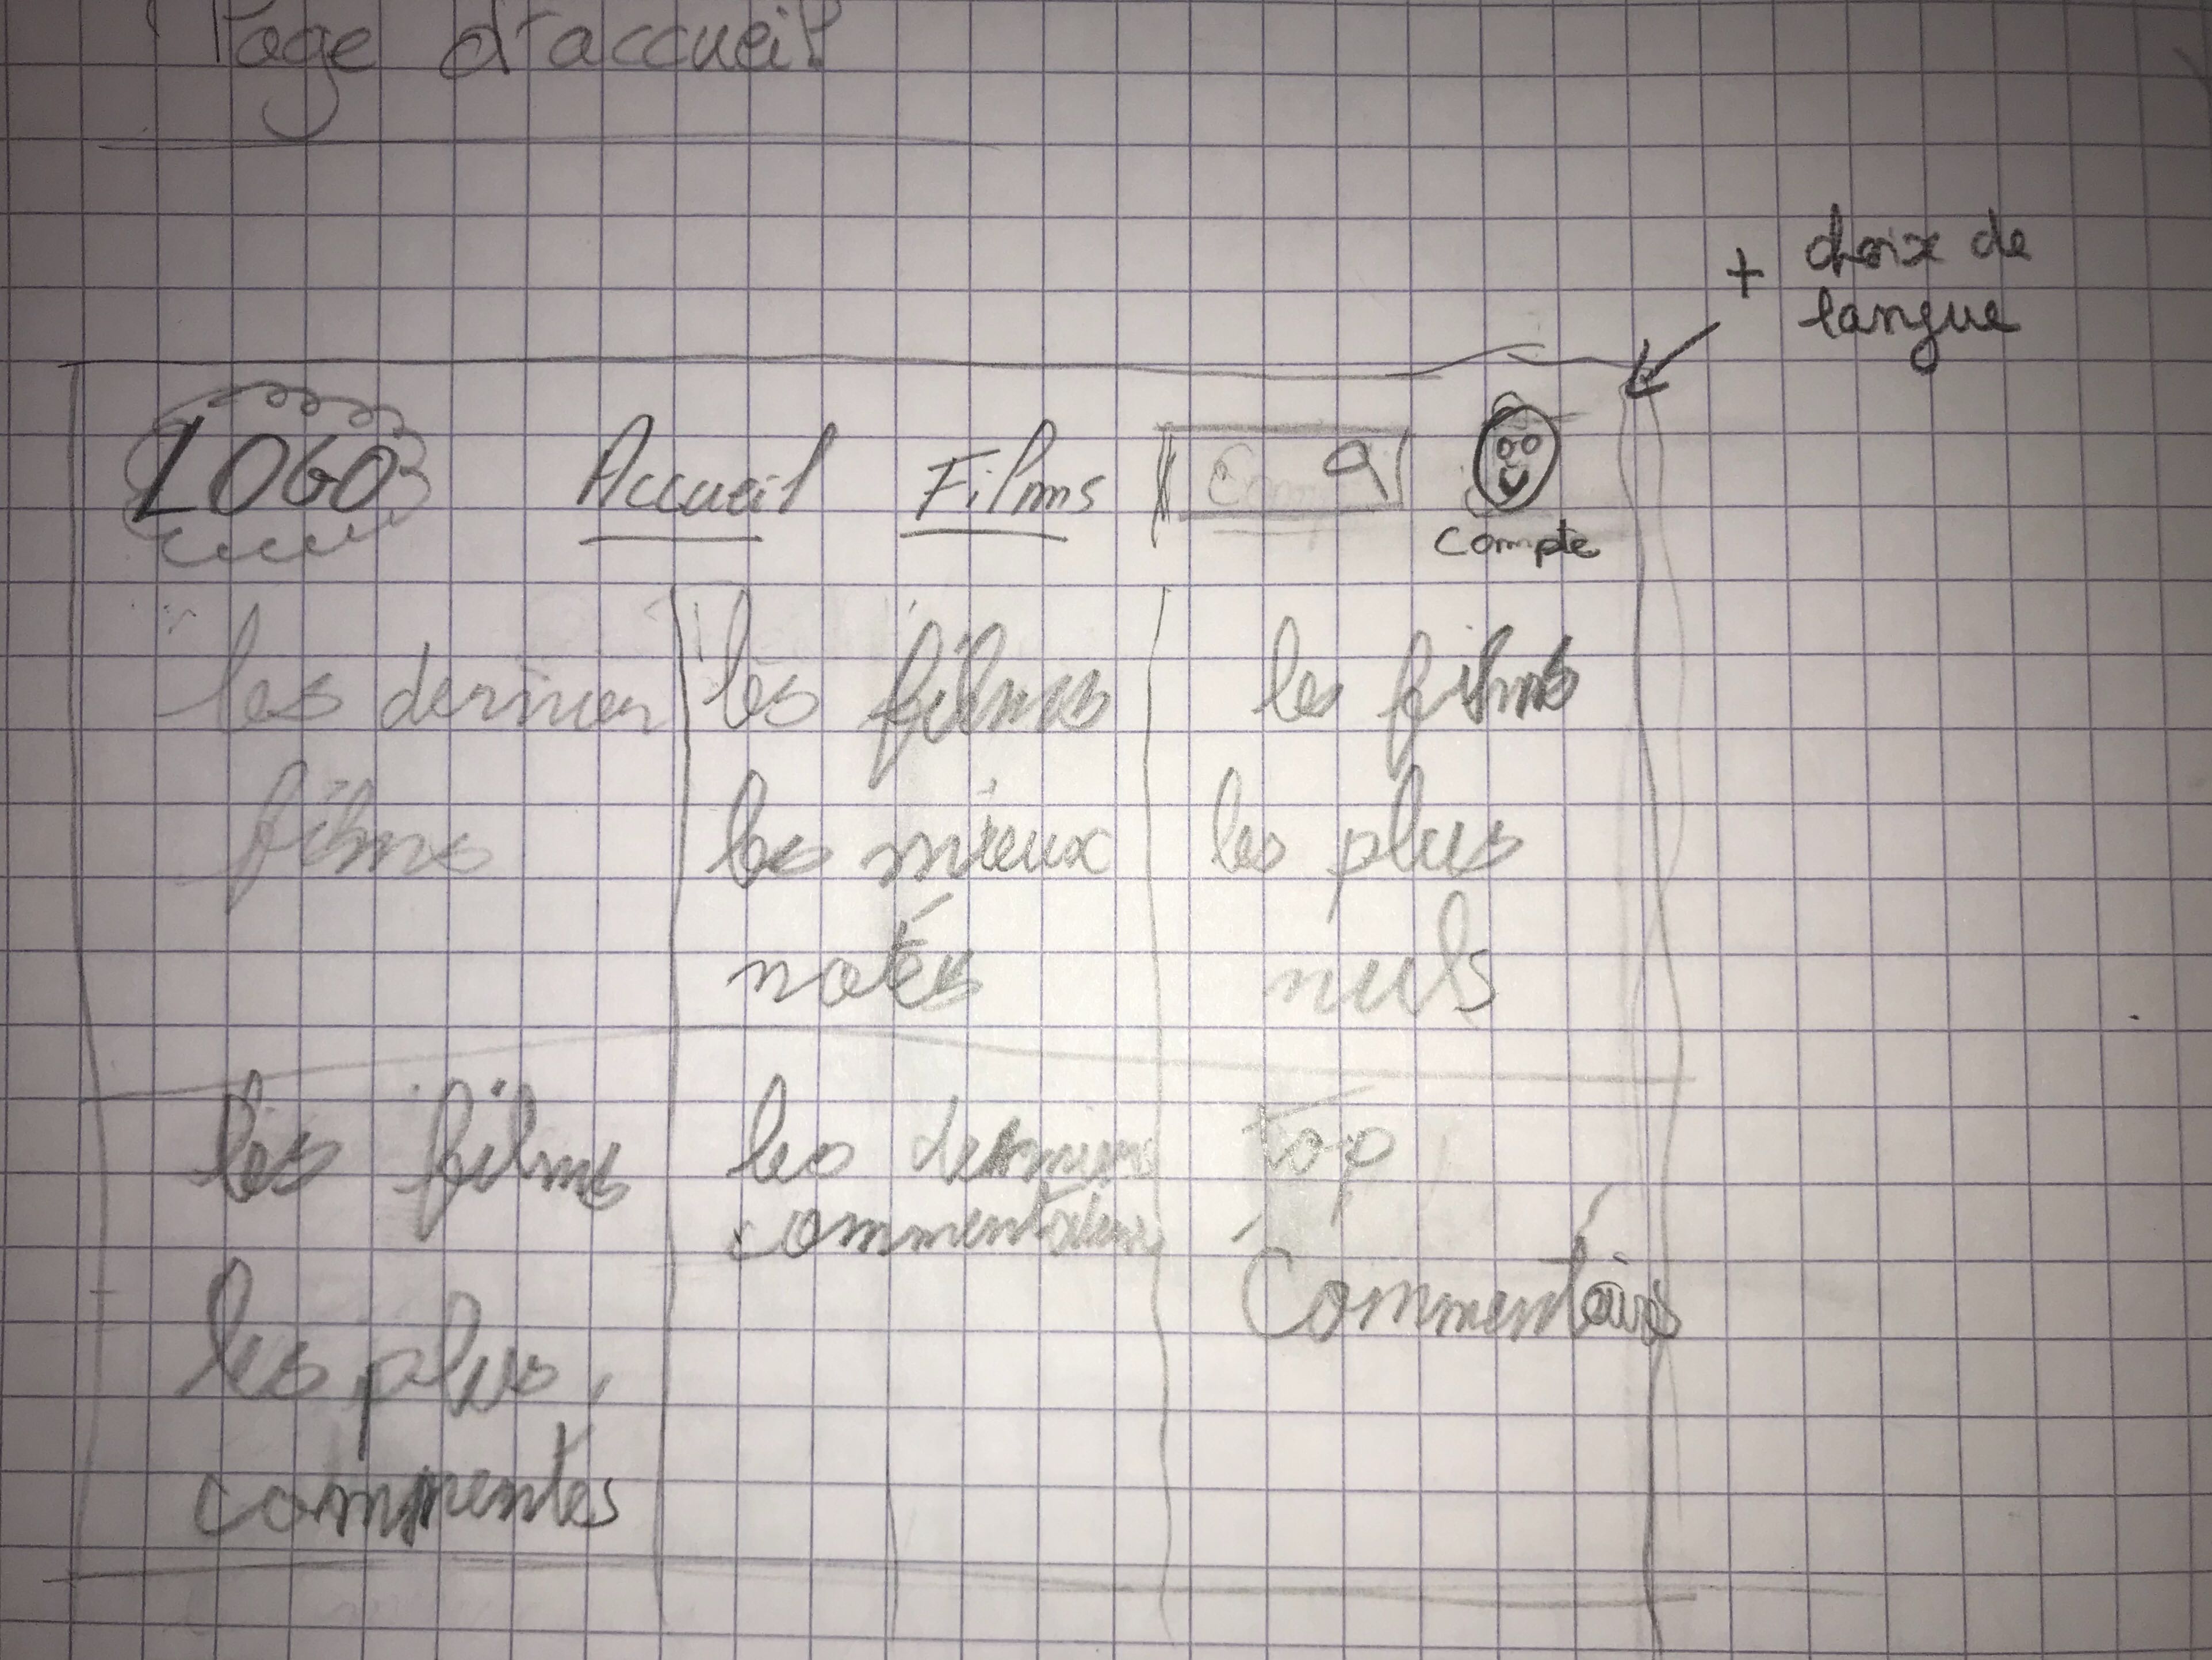 Page d'accueil
+ choix de
langue
LOGO Accueil Films
Compte
les dernier
films
les films
les mieux
notés
les films
les plus
nuls
les films
les plus
commentés
les derniers
commentaires
top
Commentaires